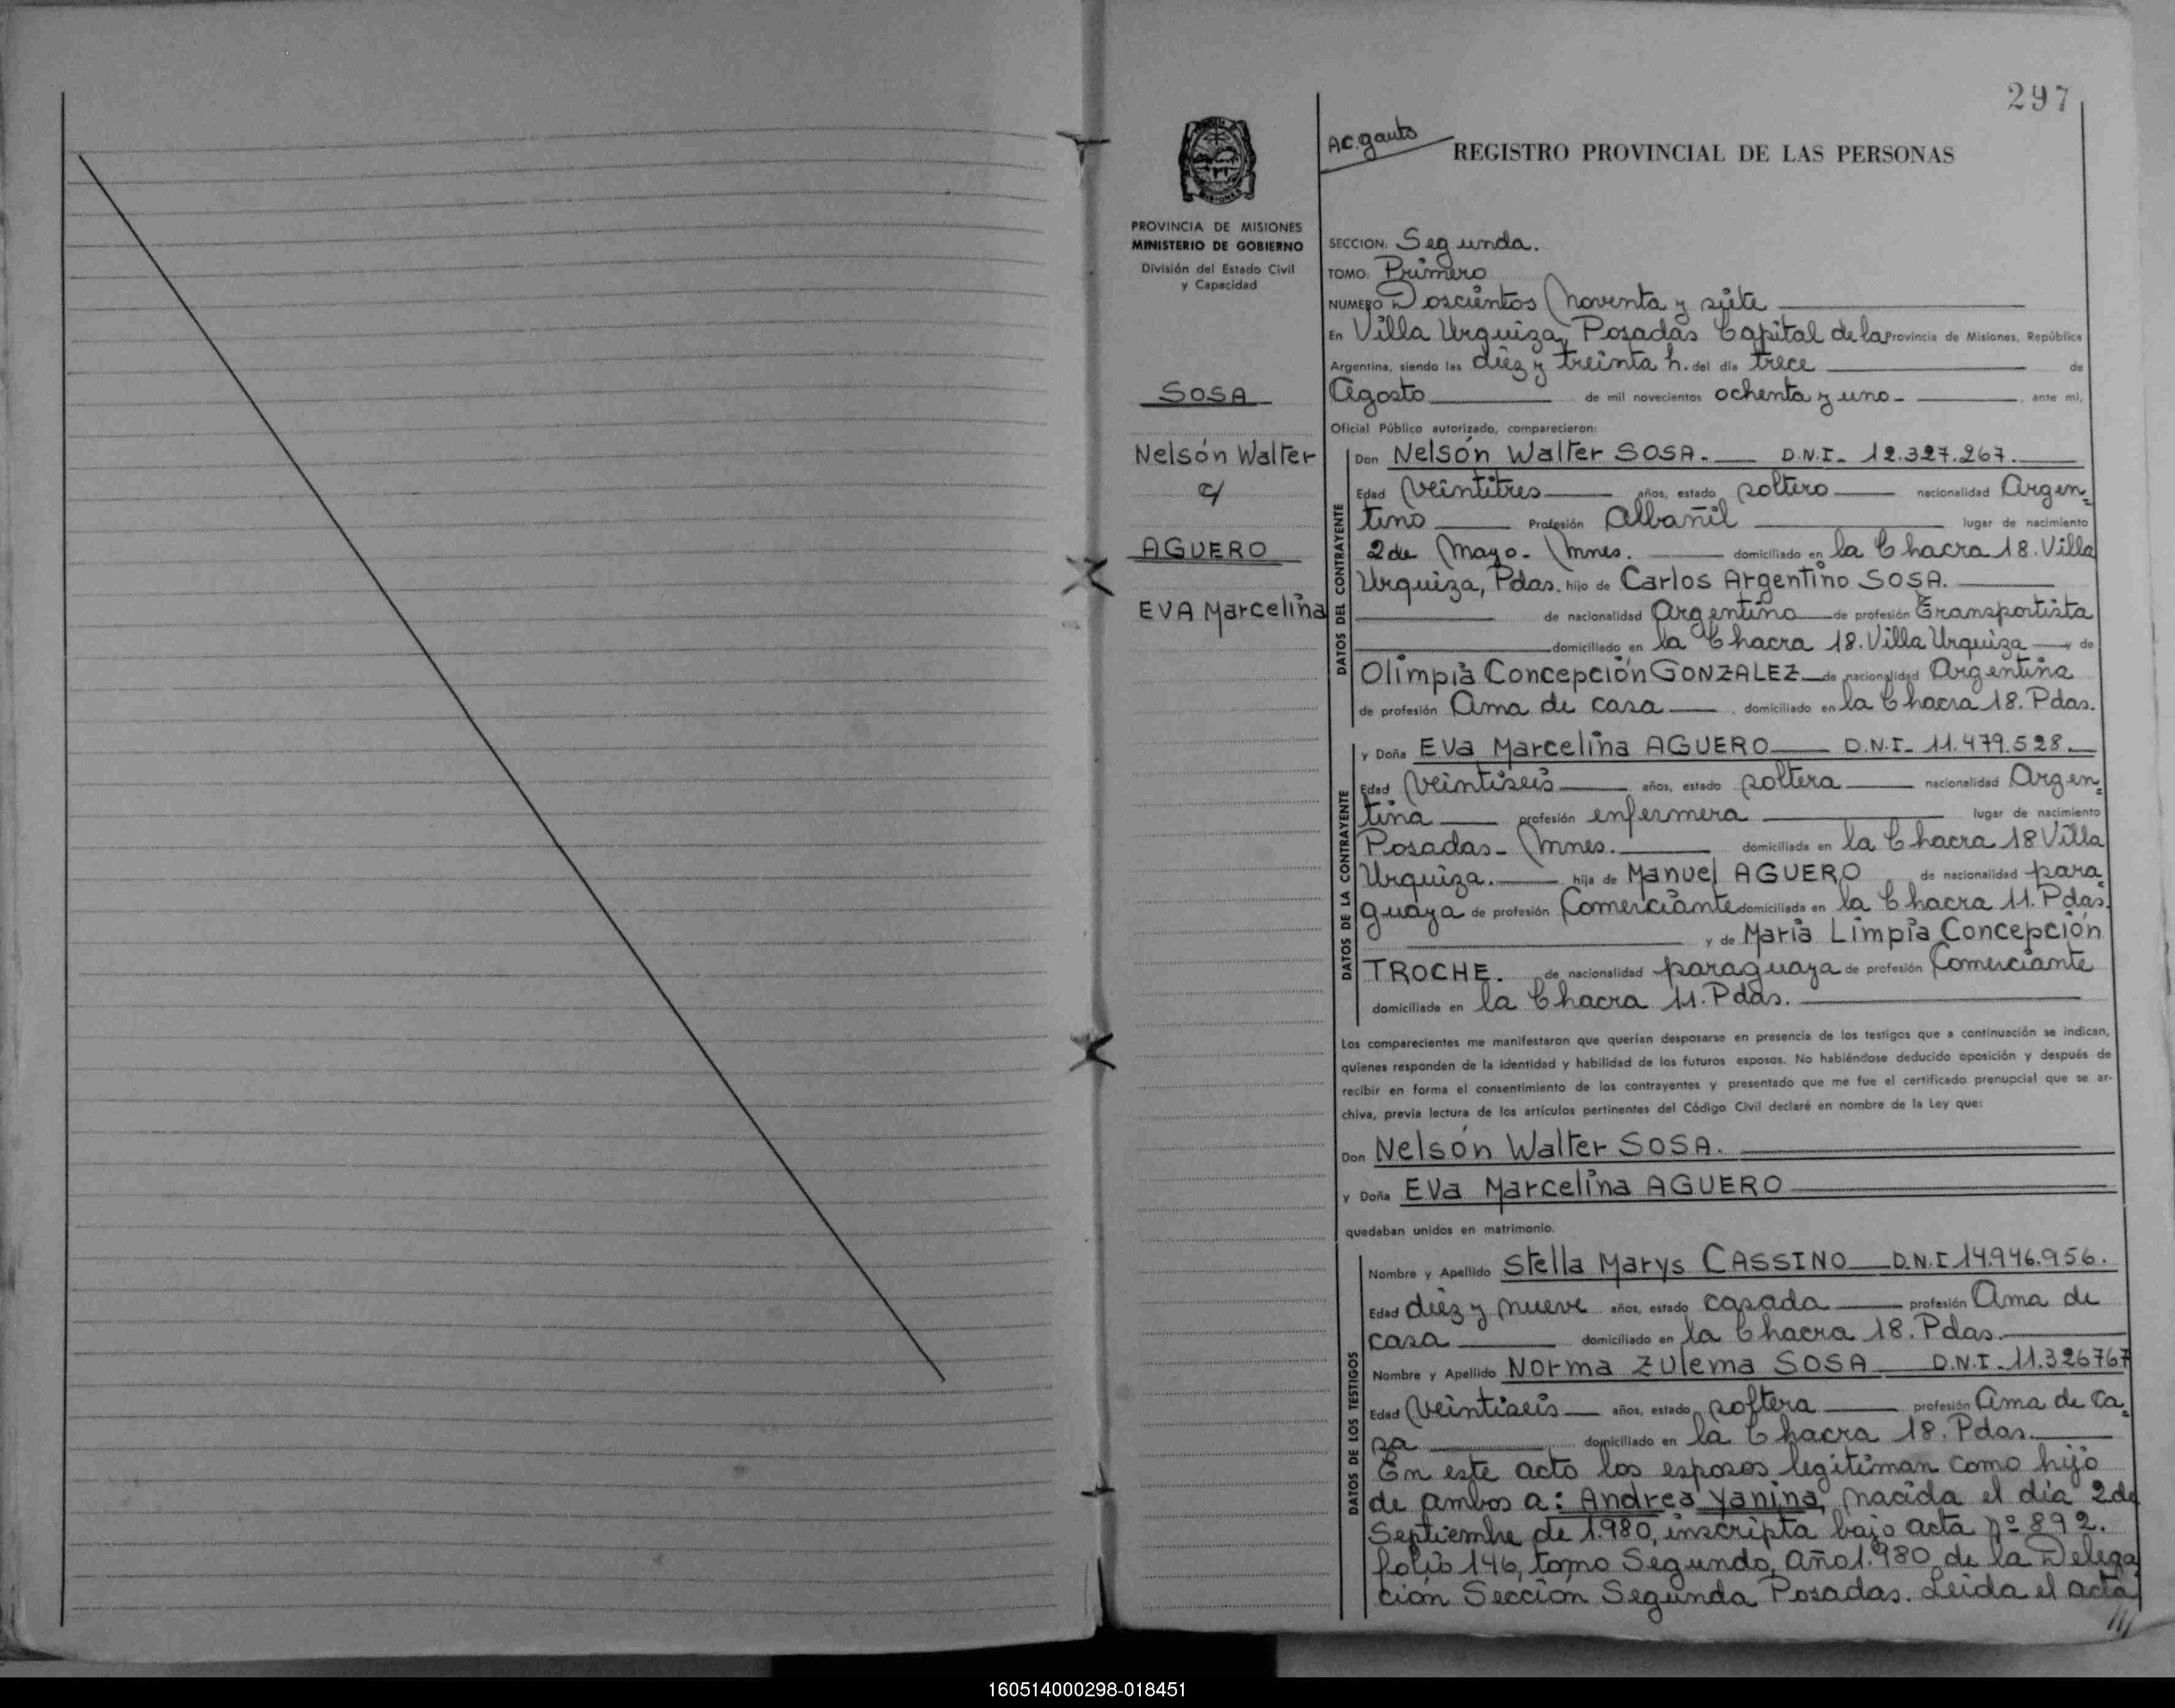 297
Ac. gauto
REGISTRO PROVINCIAL DE LAS PERSONAS
MISIONES
PROVINCIA DE MISIONES
MINISTERIO DE GOBIERNO
División del Estado Civil
y Capacidad
SOSA
Nelsón Walter
c/
AGUERO
EVA Marcelina
SECCION: Segunda.
TOMO: Primero
NUMERO Doscientos Noventa y siete
En Villa Urquiza, Posadas Capital de la Provincia de Misiones, República
Argentina, siendo las diez y treinta h. del día trece de
Agosto de mil novecientos ochenta y uno - , ante mí,
Oficial Público autorizado, comparecieron:
DATOS DEL CONTRAYENTE
Don Nelsón Walter SOSA. D.N.I. 12.327.267.
Edad Veintitres años, estado soltero nacionalidad Argen=
tino Profesión Albañil lugar de nacimiento
2 de Mayo - Mnes. domiciliado en la Chacra 18. Villa
Urquiza, Pdas. hijo de Carlos Argentino SOSA.
de nacionalidad Argentino de profesión Transportista
domiciliado en la Chacra 18. Villa Urquiza y de
Olimpia Concepción GONZALEZ de nacionalidad Argentina
de profesión Ama de casa , domiciliado en la Chacra 18. Pdas.
DATOS DE LA CONTRAYENTE
y Doña Eva Marcelina AGUERO D.N.I. 11.479.528
Edad Veintiseis años, estado soltera nacionalidad Argen=
tina profesión enfermera lugar de nacimiento
Posadas - Mnes. domiciliada en la Chacra 18 Villa
Urquiza. hija de Manuel AGUERO de nacionalidad para=
guaya de profesión Comerciante domiciliada en la Chacra 11. Pdas.
y de Maria Limpia Concepción
TROCHE. de nacionalidad paraguaya de profesión Comerciante
domiciliada en la Chacra 11. Pdas.
Los comparecientes me manifestaron que querían desposarse en presencia de los testigos que a continuación se indican,
quienes responden de la identidad y habilidad de los futuros esposos. No habiéndose deducido oposición y después de
recibir en forma el consentimiento de los contrayentes y presentado que me fue el certificado prenupcial que se ar-
chiva, previa lectura de los artículos pertinentes del Código Civil declaré en nombre de la Ley que:
Don Nelsón Walter SOSA.
y Doña Eva Marcelina AGUERO
quedaban unidos en matrimonio.
DATOS DE LOS TESTIGOS
Nombre y Apellido Stella Marys CASSINO D.N.I 14.946.956.
Edad diez y nueve años, estado casada profesión Ama de
casa domiciliado en la Chacra 18. Pdas.
Nombre y Apellido Norma Zulema SOSA D.N.I. 11.326767
Edad Veintiseis años, estado soltera profesión Ama de ca=
sa domiciliado en la Chacra 18. Pdas.
En este acto los esposos legitiman como hijo
de ambos a: Andrea Yanina, nacida el día 2 de
Septiembre de 1.980, inscripta bajo acta nº 892.
folio 146, tomo Segundo, año 1.980, de la Delega
ción Sección Segunda Posadas. Leida el acta
///
160514000298-018451